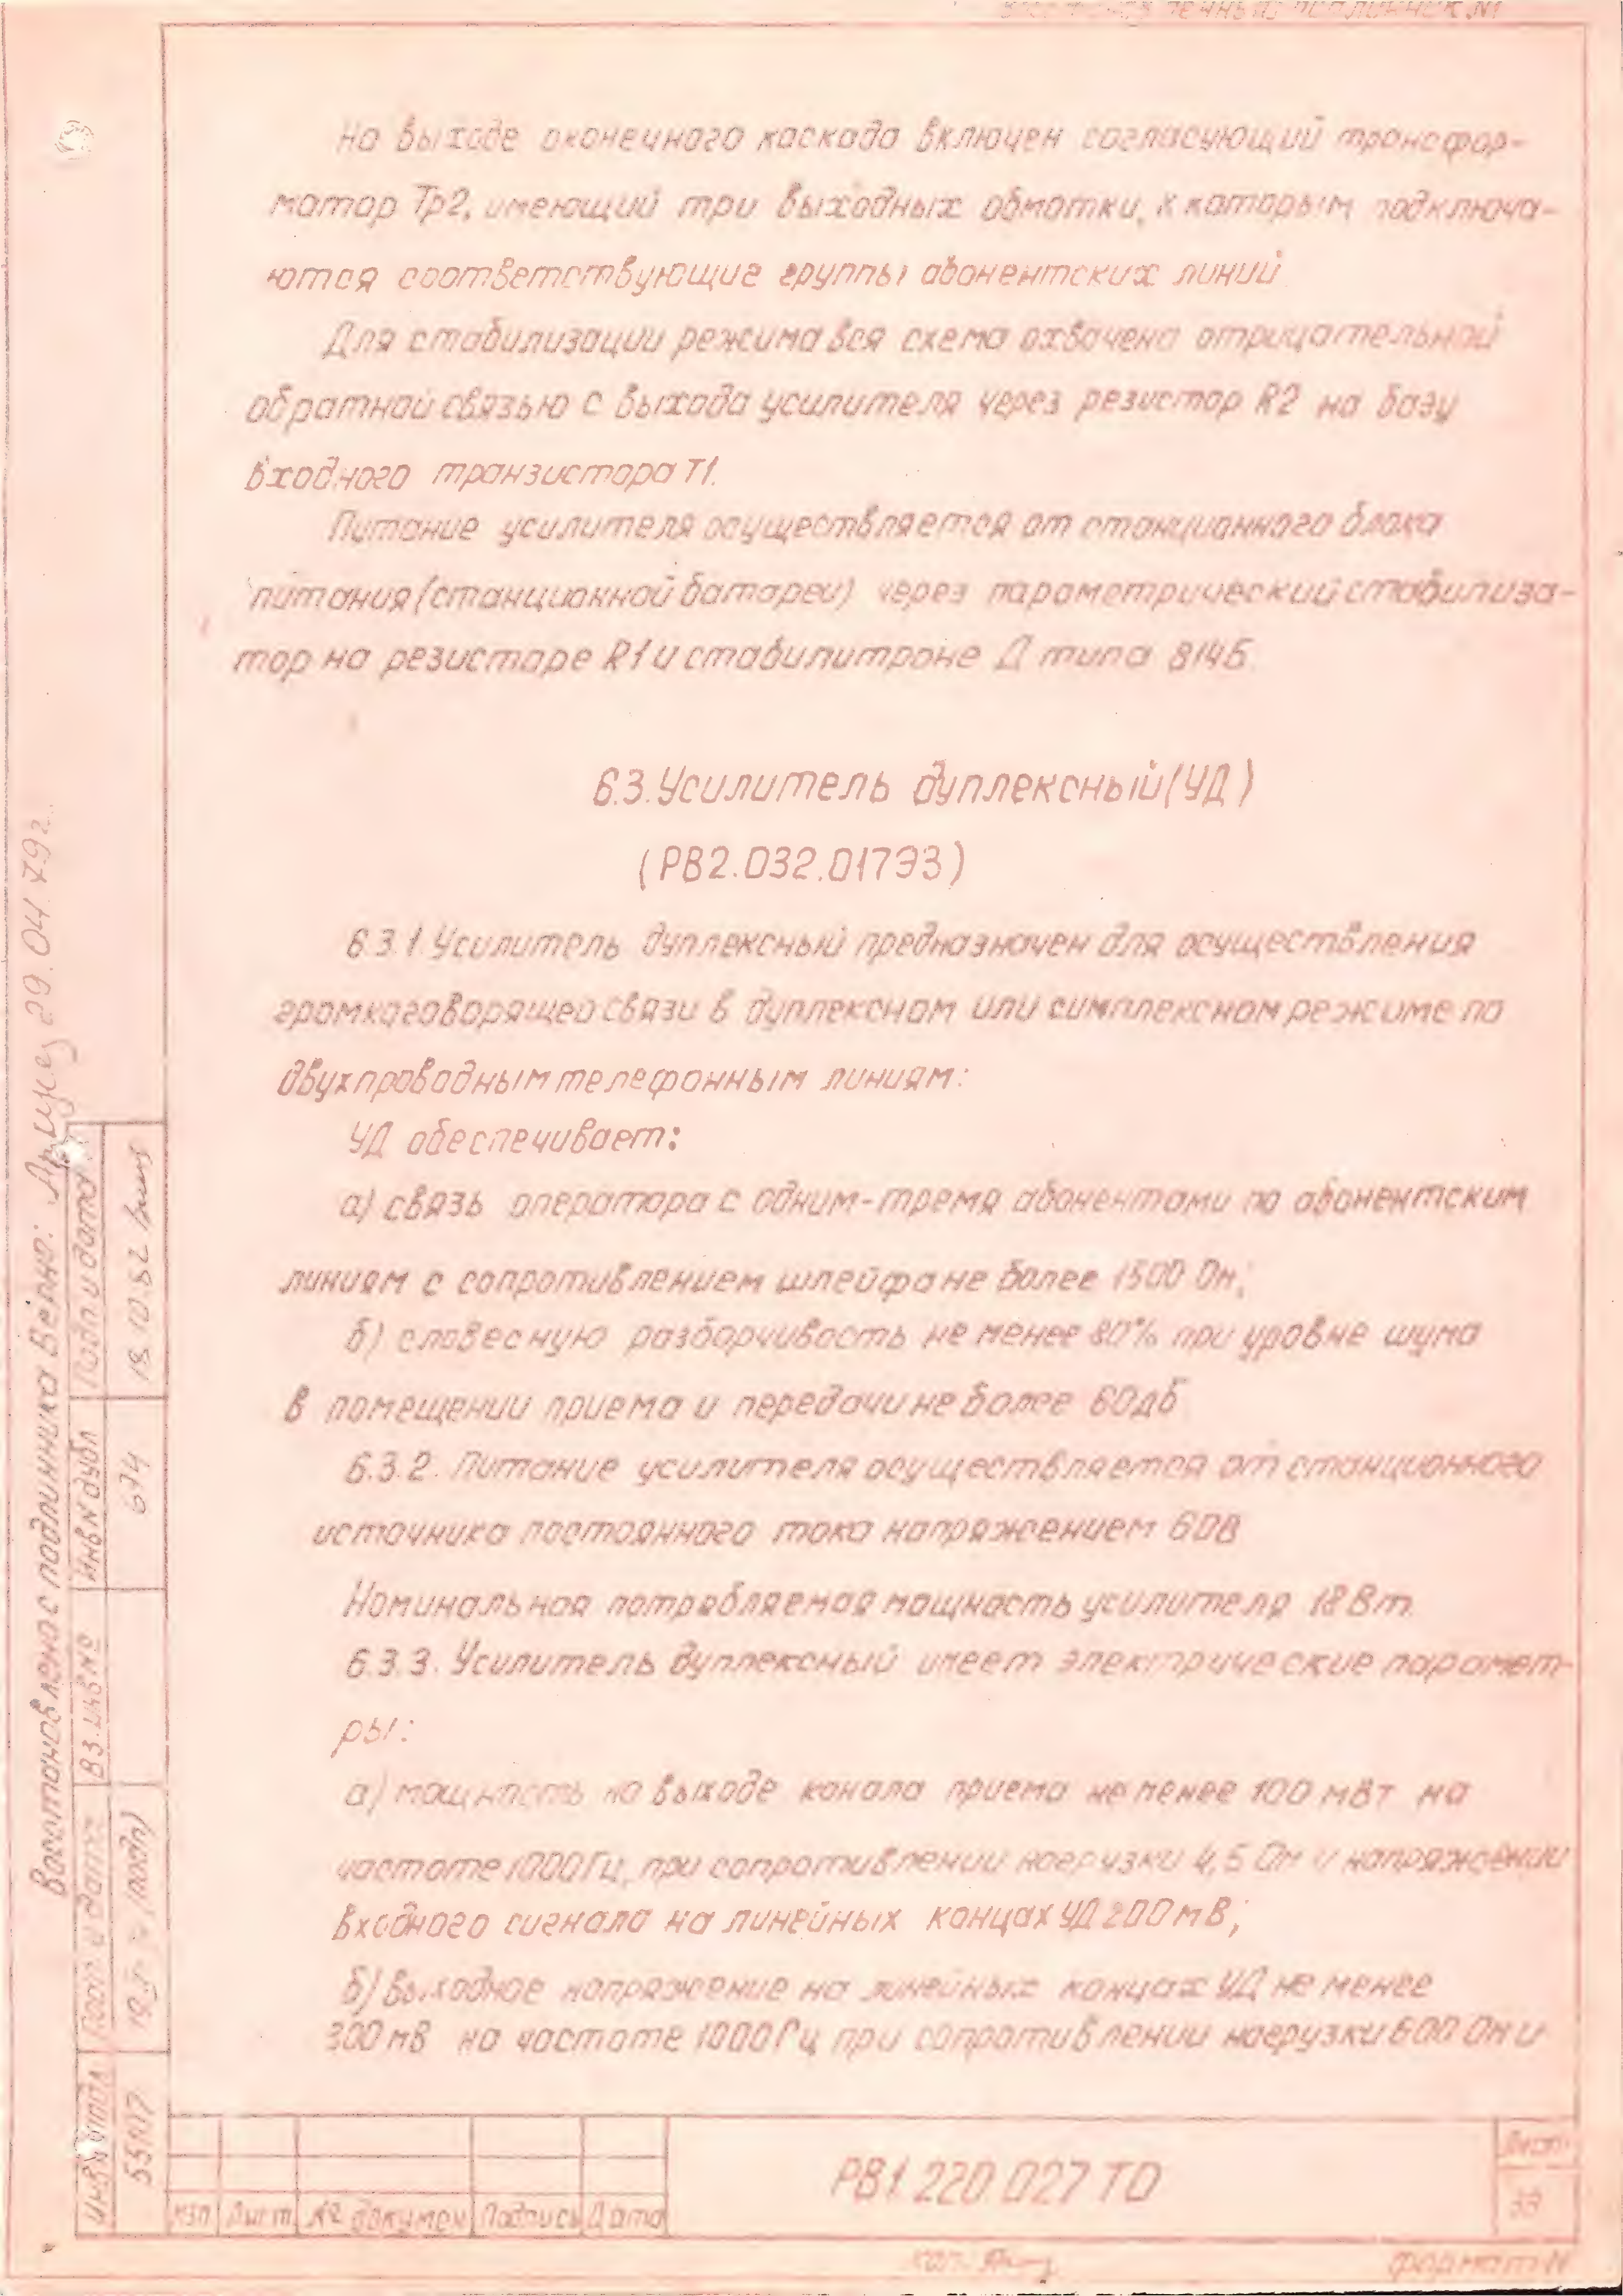 На выходе оконечного каскада включен согласующий трансфор-
матор Тр2, имеющий три выходных обмотки, к которым подключа-
ются соответствующие группы абонентских линий
Для стабилизации режима вся схема охвачена отрицательной
обратной связью с выхода усилителя через резистор R2 на базу
входного транзистора Т1.
Питание усилителя осуществляется от станционного блока
питания (станционной батареи) через параметрический стабилиза-
тор на резисторе R1 и стабилитроне Д типа 814Б.
6.3. Усилитель дуплексный (УД)
(РВ2.032.017ЭЗ)
6.3.1. Усилитель дуплексный предназначен для осуществления
громкоговорящей связи в дуплексном или симплексном режиме по
двухпроводным телефонным линиям:
УД обеспечивает:
а) связь оператора с одним-тремя абонентами по абонентским
линиям с сопротивлением шлейфа не более 1500 Ом;
б) словесную разборчивость не менее 80% при уровне шума
в помещении приема и передачи не более 60дБ
6.3.2. Питание усилителя осуществляется от станционного
источника постоянного тока напряжением 60В
Номинальная потребляемая мощность усилителя 18 Вт.
6.3.3. Усилитель дуплексный имеет электрические парамет-
ры:
а) мощность на выходе канала приема не менее 100 мВт на
частоте 1000Гц, при сопротивлении нагрузки 4,5 Ом и напряжении
входного сигнала на линейных концах УД 200мВ;
б) выходное напряжение на линейных концах УД не менее
300мВ на частоте 1000Гц при сопротивлении нагрузки 600 Ом и
Восстановлена с подлинника Верно: 29.04.79г.
Подп. и дата 18.10.82
Инв № дубл 674
Вз. инв №
Подп. и дата (подп)
Инв № подл 55117
изм Лист № докумен Подпись Дата
РВ1.220.027 ТО
Лист
формат 11